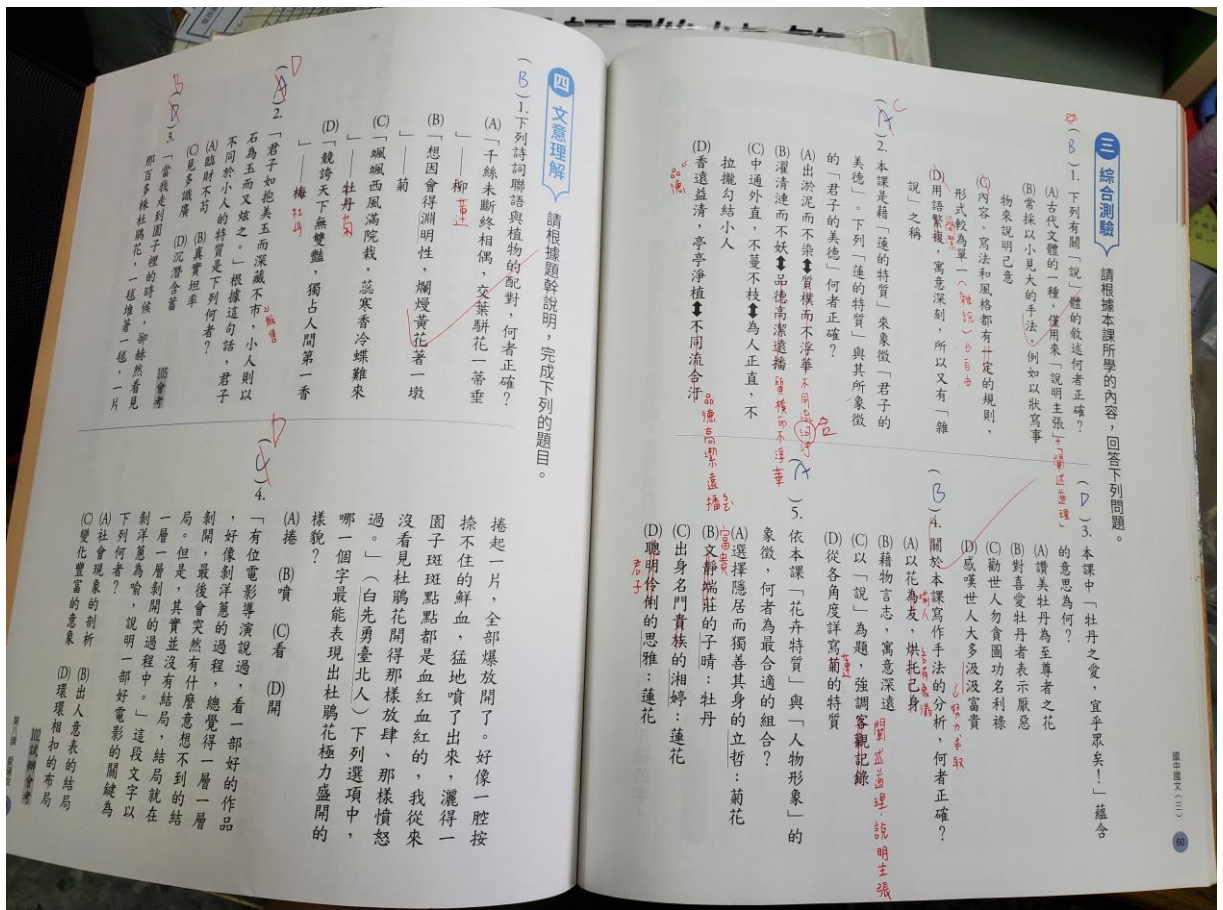 國中國文(三)
60
三 綜合測驗 請根據本課所學的內容,回答下列問題。
(B)1. 下列有關「說」體的敘述何者正確?
(A)古代文體的一種,僅用來「說明主張」
+「闡述道理」
(B)常採以小見大的手法,例如以狀寫事
物來說明己意
(C)內容、寫法和風格都有一定的規則,
形式較為單一
(雜說)也自由
(D)用語繁複,寓意深刻,所以又有「雜
說」之稱
簡潔
(A)2. 本課是藉「蓮的特質」來象徵「君子的
C
美德」。下列「蓮的特質」與其所象徵
的「君子的美德」何者正確?
(A)出淤泥而不染↔質樸而不浮華
不同流合汙
(B)濯清漣而不妖↔品德高潔遠播
質樸而不浮華
(C)中通外直,不蔓不枝↔為人正直,不
拉攏勾結小人
(D)香遠益清,亭亭淨植↔不同流合汙
品德
品德高潔遠播
(D)3. 本課中「牡丹之愛,宜乎眾矣!」蘊含
的意思為何?
(A)讚美牡丹為至尊者之花
(B)對喜愛牡丹者表示厭惡
(C)勸世人勿貪圖功名利祿
(D)感嘆世人大多汲汲富貴
努力求取
(B)4. 關於本課寫作手法的分析,何者正確?
(A)以花為友,烘托己身
(B)藉物言志,寓意深遠
(C)以「說」為題,強調客觀記錄
闡述道理、說明主張
(D)從各角度詳寫菊的特質
蓮
(A)5. 依本課「花卉特質」與「人物形象」的
象徵,何者為最合適的組合?
(A)選擇隱居而獨善其身的立哲:菊花
(B)文靜端莊的子晴:牡丹
富貴
(C)出身名門貴族的湘婷:蓮花
(D)聰明伶俐的思雅:蓮花
君子
四 文意理解 請根據題幹說明,完成下列的題目。
(B)1. 下列詩詞聯語與植物的配對,何者正確?
(A)「千絲未斷終相偶,交葉駢花一蒂垂
」——柳
蓮
(B)「想因會得淵明性,爛熳黃花著一墩
」——菊
(C)「颯颯西風滿院栽,蕊寒香冷蝶難來
」——牡丹
菊
(D)「競誇天下無雙豔,獨占人間第一香
」——梅
牡丹
(A)2. 「君子如抱美玉而深藏不市,小人則以
D
販售
石為玉而又炫之。」根據這句話,君子
不同於小人的特質是下列何者?
(A)臨財不苟 (B)真實坦率
(C)見多識廣 (D)沉潛含蓄
105會考
(D)3. 「當我走到園子裡的時候,卻赫然看見
B
那百多株杜鵑花,一毬堆著一毬,一片
捲起一片,全部爆放開了。好像一腔按
捺不住的鮮血,猛地噴了出來,灑得一
園子斑斑點點都是血紅血紅的,我從來
沒看見杜鵑花開得那樣放肆、那樣憤怒
過。」(白先勇臺北人)下列選項中,
哪一個字最能表現出杜鵑花極力盛開的
樣貌?
(A)捲 (B)噴 (C)看 (D)開
(C)4. 「有位電影導演說過,看一部好的作品
D
,好像剝洋蔥的過程,總覺得一層一層
剝開,最後會突然有什麼意想不到的結
局。但是,其實並沒有結局,結局就在
一層一層剝開的過程中。」這段文字以
剝洋蔥為喻,說明一部好電影的關鍵為
下列何者?
(A)社會現象的剖析 (B)出人意表的結局
(C)變化豐富的意象 (D)環環相扣的布局
102試辦會考
第八課 愛蓮說